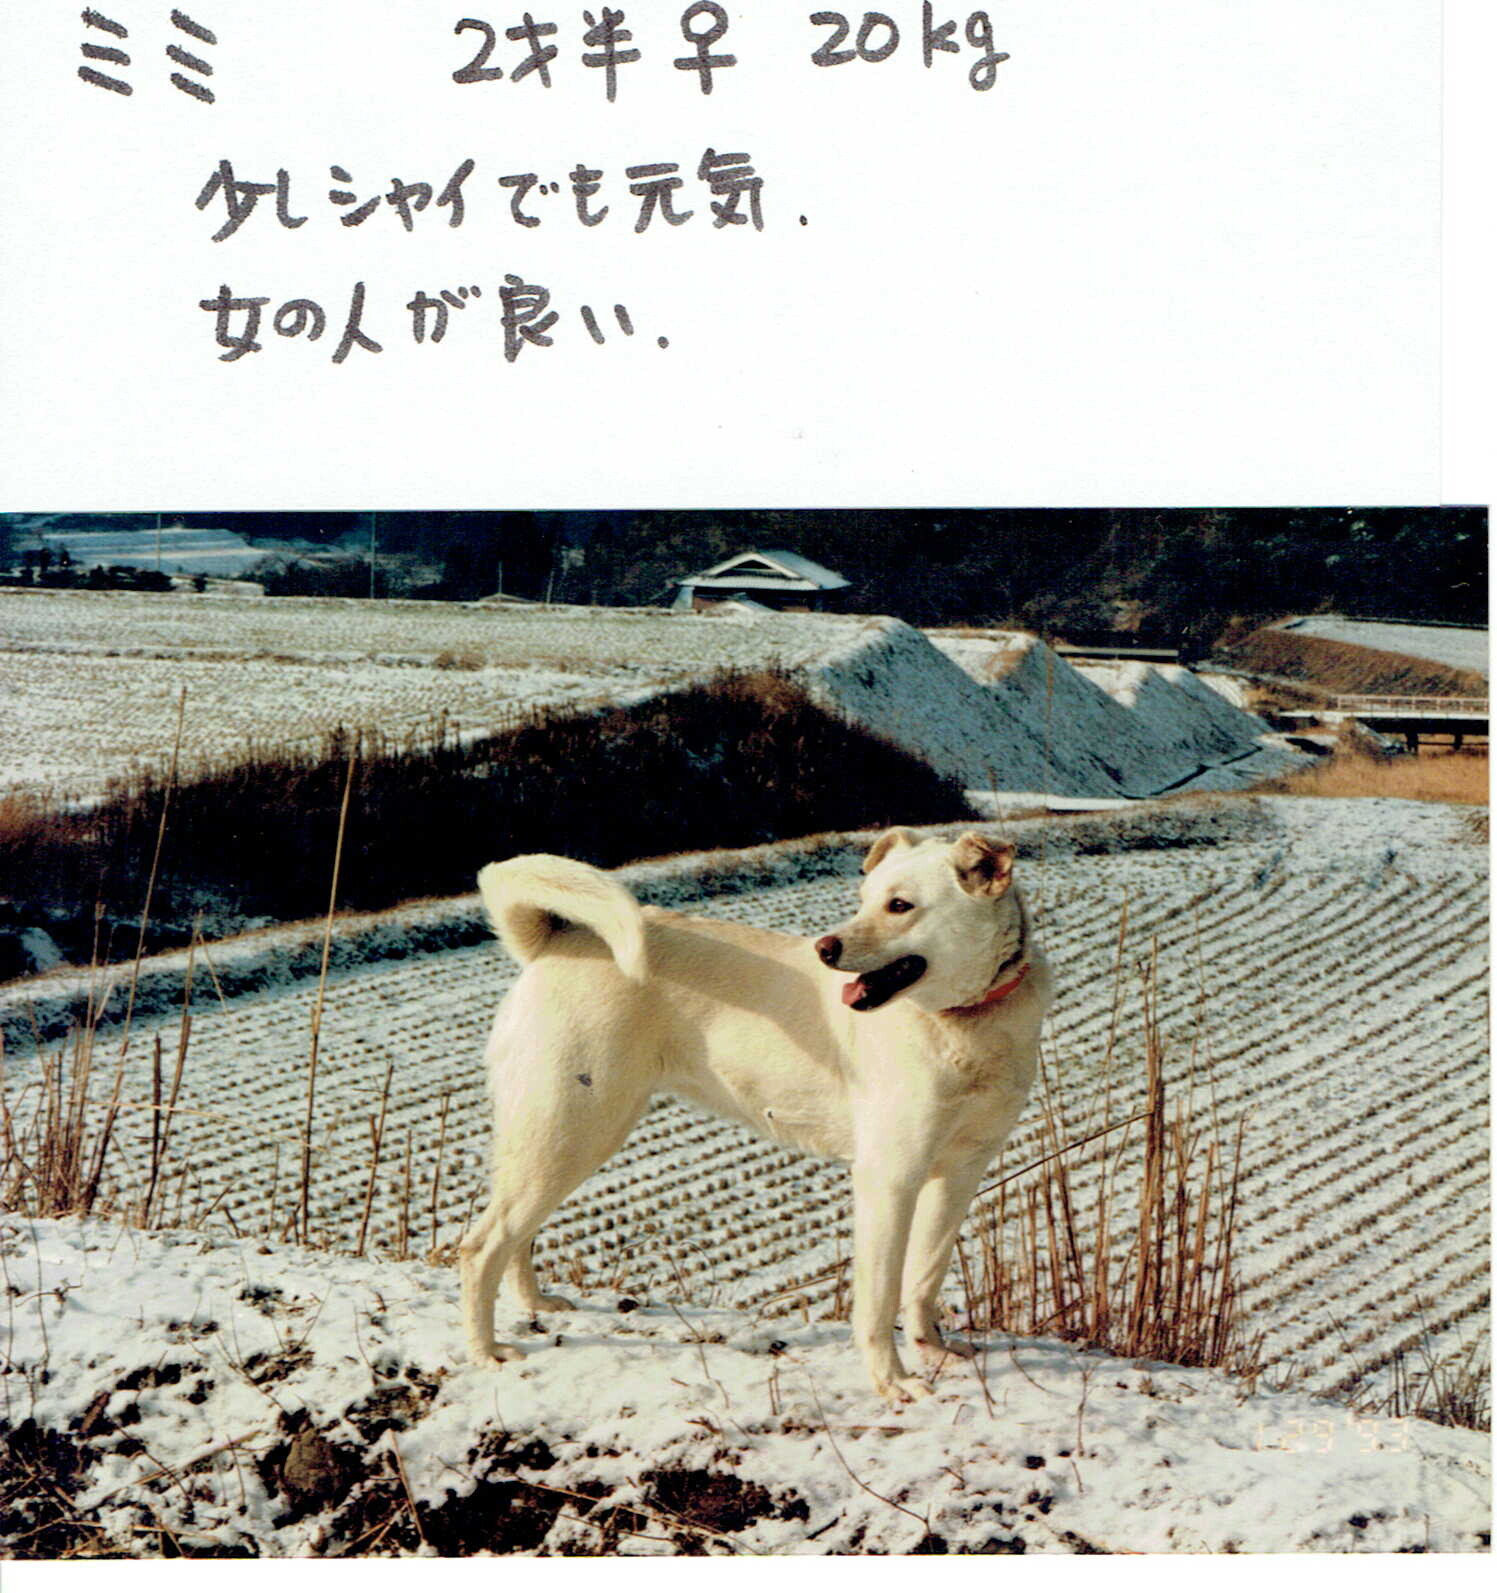 ミミ 2才半 ♀ 20kg
少しシャイでも元気.
女の人が良い.
1 29 '93